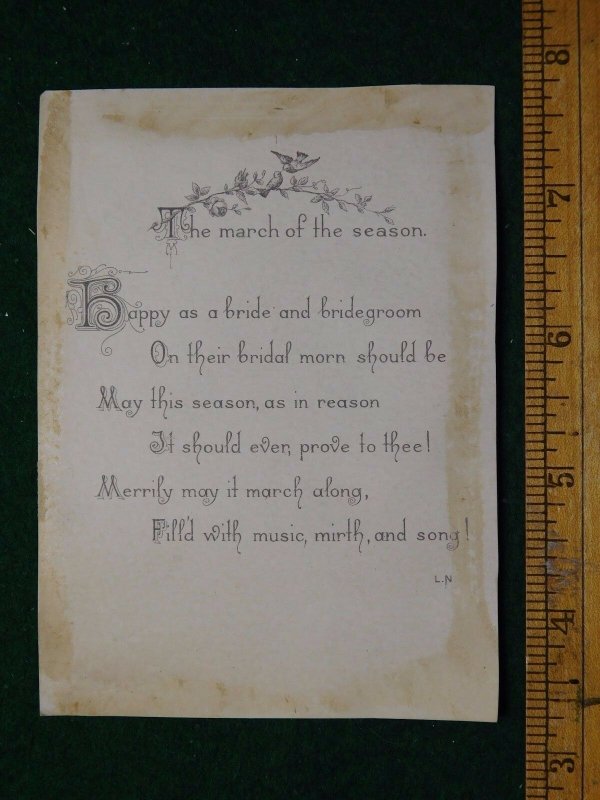 The march of the season.
Happy as a bride and bridegroom
On their bridal morn should be
May this season, as in reason
It should ever, prove to thee!
Merrily may it march along,
Fill'd with music, mirth, and song!
L.N
8
7
6
5
4
3